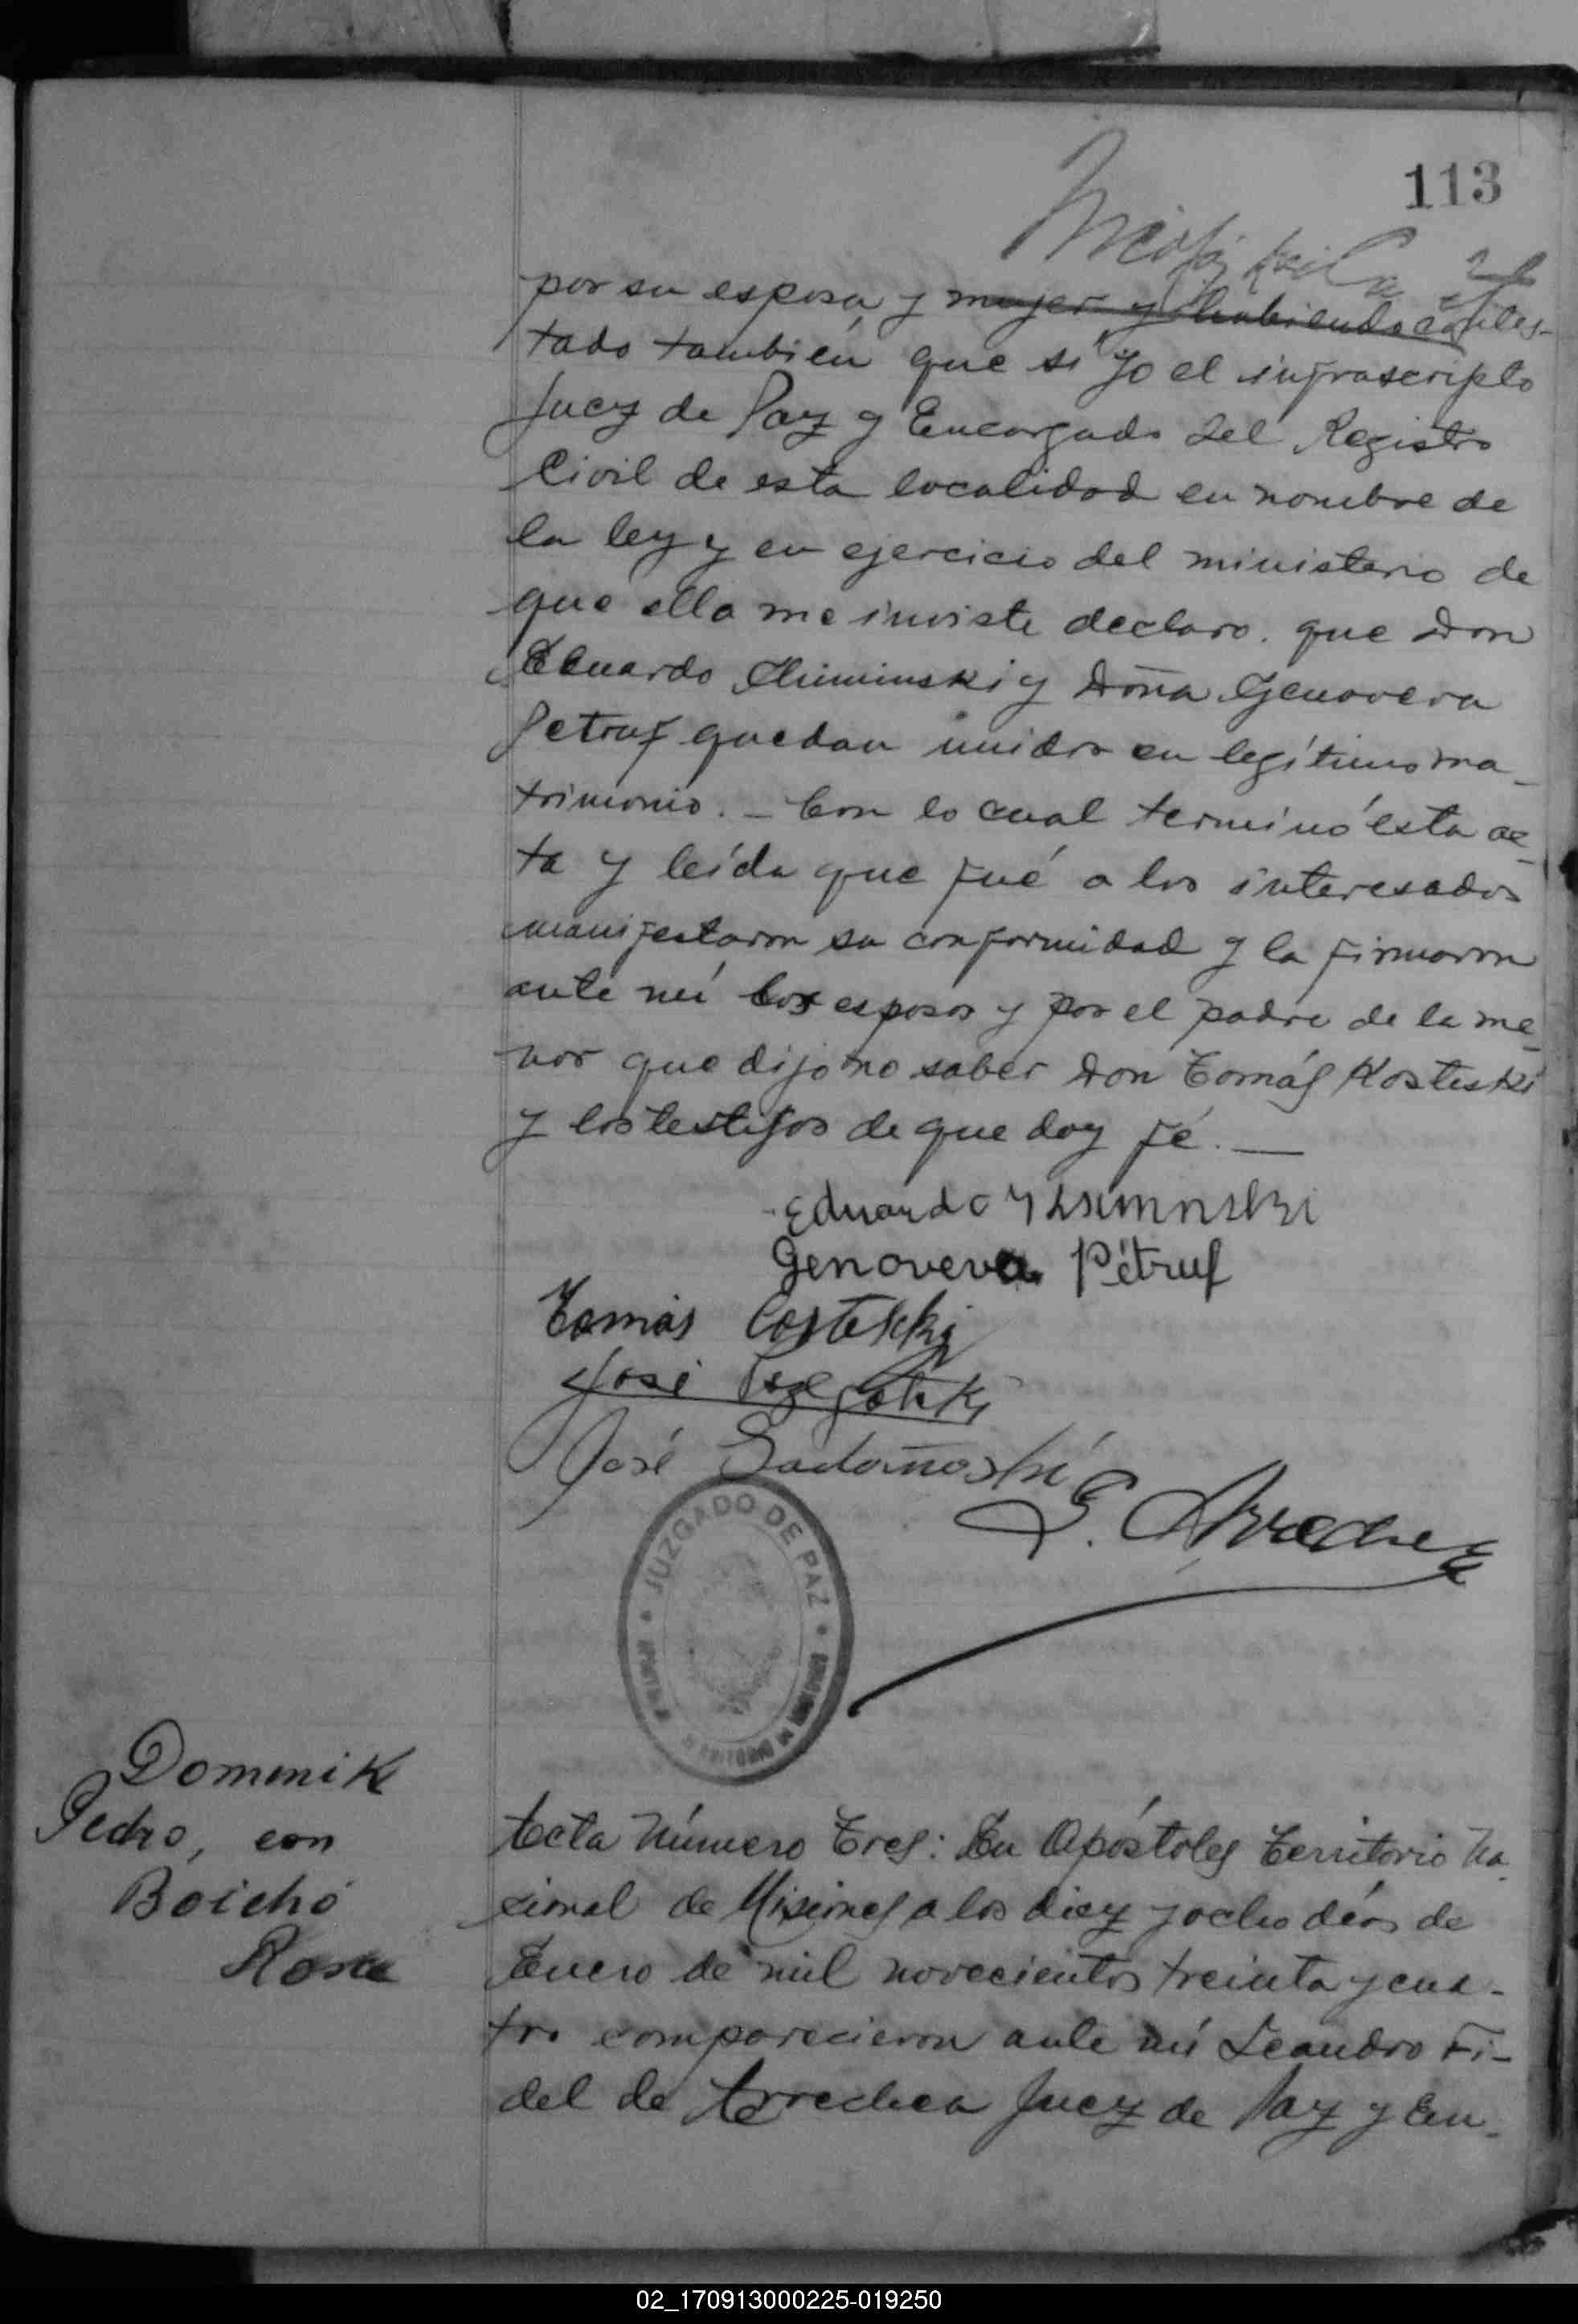 113
por su esposa y mujer y habiendo contes-
tado también que si yo el infrascripto
Juez de Paz y Encargado del Registro
Civil de esta localidad en nombre de
la ley y en ejercicio del ministerio de
que ella me inviste declaro. que Don
Eduardo y Doña Genoveva
Petruf quedan unidos en legítimo ma-
trimonio. _ Con lo cual terminó esta ac-
ta y leída que fué a los interesados
manifestaron su conformidad y la firmaron
ante mí los esposos y por el padre de la me-
nor que dijo no saber Don Tomás Kosteski
y los testigos de que doy fé. —
Eduardo
Genoveva Pétruf
Tomás Costeski
José
José
L. Arrechea
JUZGADO DE PAZ
Dominik
Pedro, con
Boichó
Rosa
Acta Número Tres: En Apóstoles Territorio Na-
cional de Misiones a los diez y ocho días de
Enero de mil novecientos treinta y cua-
tro comparecieron ante mí Leandro Fi-
del de Arrechea Juez de Paz y En-
02_170913000225-019250